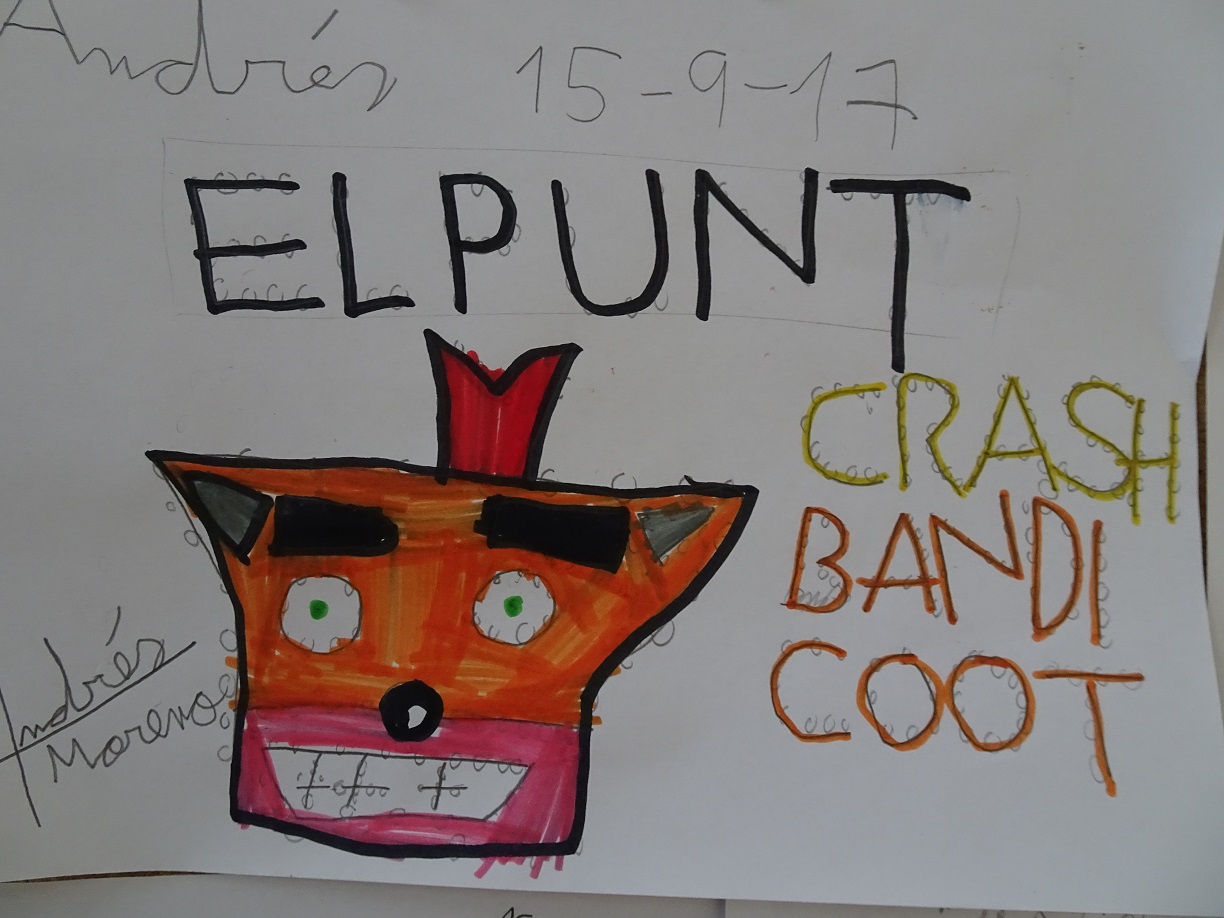 Andrés 15-9-17
EL PUNT
CRASH
BANDI
COOT
Andrés
Moreno